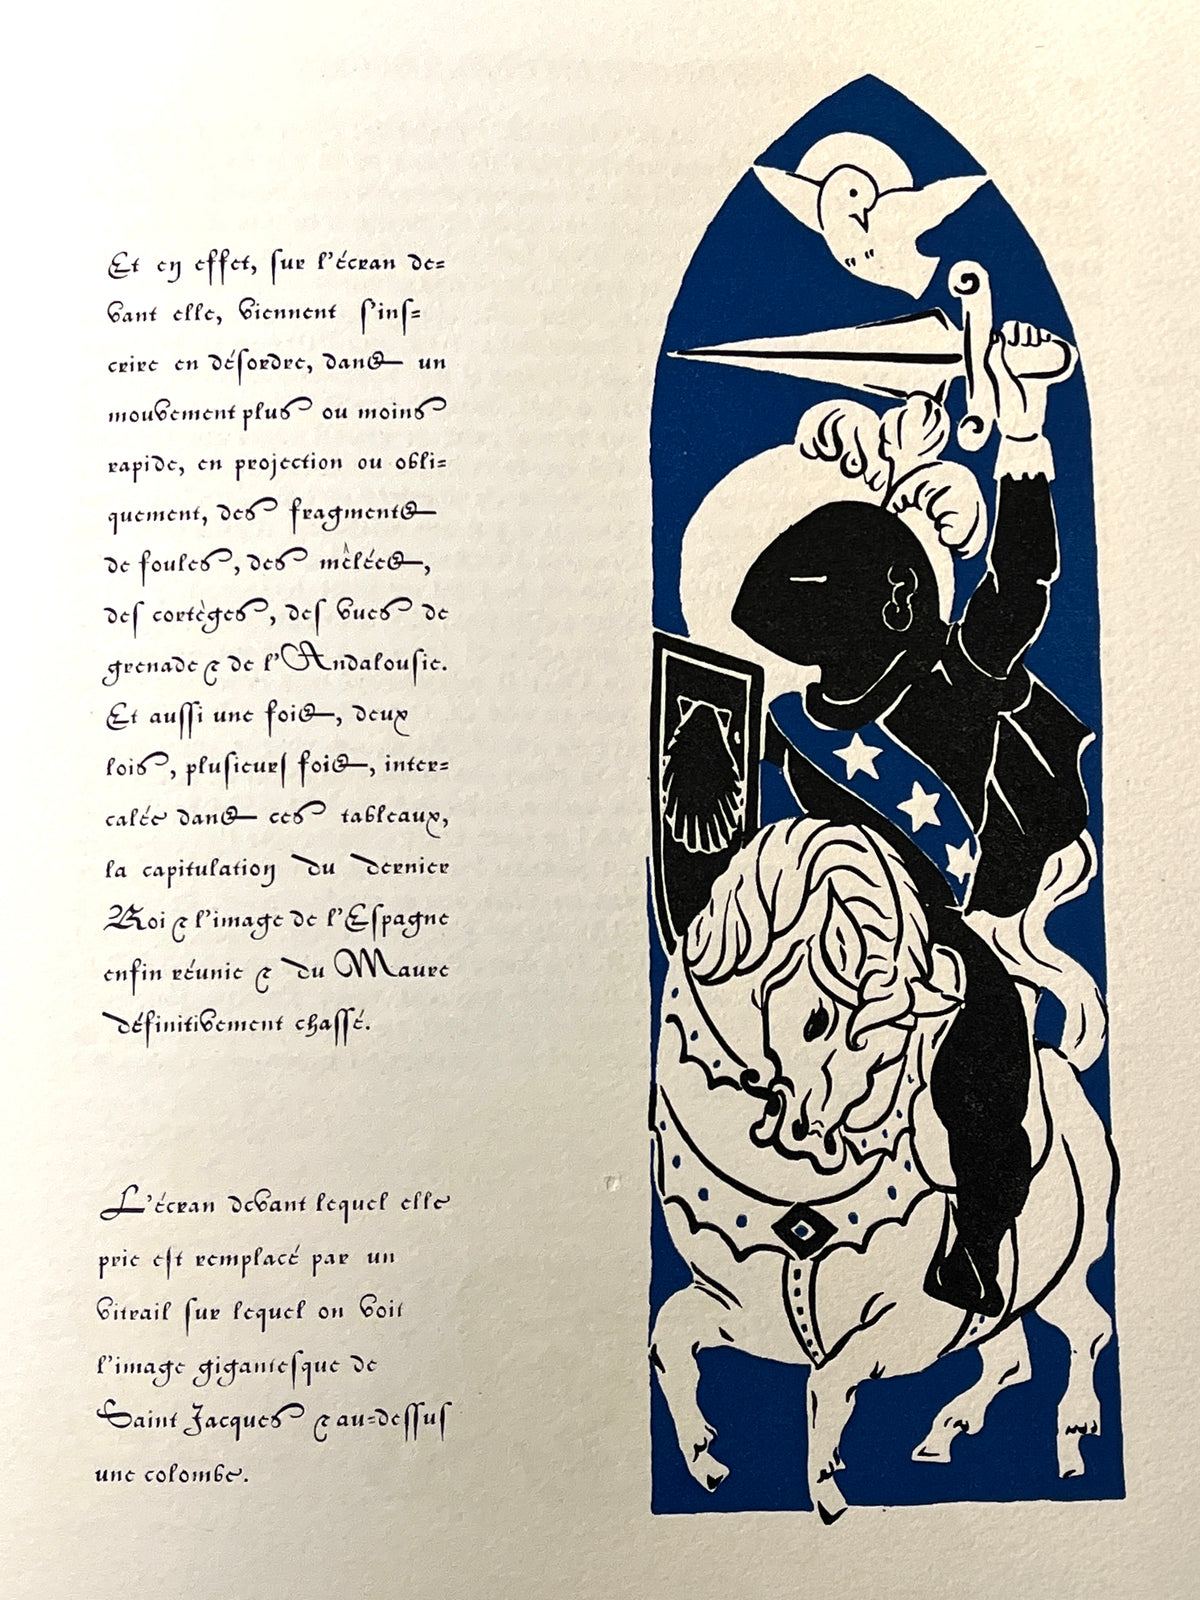 Et en effet, sur l'écran de=
vant elle, viennent s'ins=
crire en désordre, dans un
mouvement plus ou moins
rapide, en projection ou obli=
quement, des fragments
de foules, des mêlées,
des cortèges, des vues de
grenade & de l'Andalousie.
Et aussi une fois, deux
lois, plusieurs fois, inter=
calée dans ces tableaux,
la capitulation du dernier
Roi & l'image de l'Espagne
enfin réunie & du Maure
définitivement chassé.
L'écran devant lequel elle
prie est remplacé par un
vitrail sur lequel on voit
l'image gigantesque de
Saint Jacques & au=dessus
une colombe.